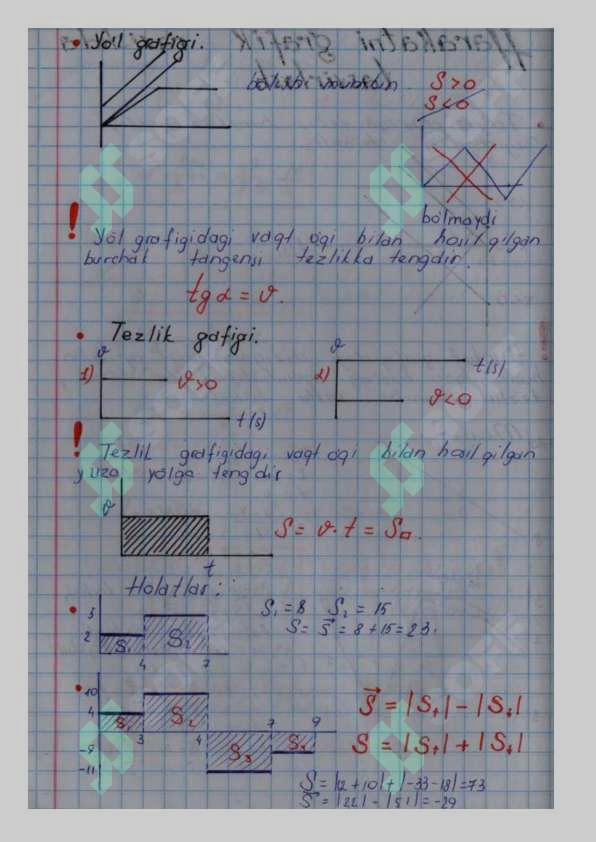 • Yo'l grafigi.
S>0
S<0
bo'lmaydi
! Yo'l grafigidagi vaqt o'qi bilan hosil qilgan
burchak tangensi tezlikka tengdir.
tg α = v.
• Tezlik gafigi.
v
1)
v>0
t(s)
v
2)
t(s)
v<0
! Tezlik grafigidagi vaqt o'qi bilan hosil qilgan
yuza yo'lga tengdir
v
t
S = v·t = S▱.
Holatlar:
•
5
2
S₁
S₂
4
7
S₁ = 8 S₂ = 15
S = S⃗ = 8+15 = 23.
•
10
4
S₁
S₂
3
4
7
9
S₃
S₄
-9
-11
S⃗ = |S₊| - |S₊|
S = |S₊| + |S₊|
S = |12+10| + |-33-18| = 73
S⃗ = |22| - |51| = -29
SOFF